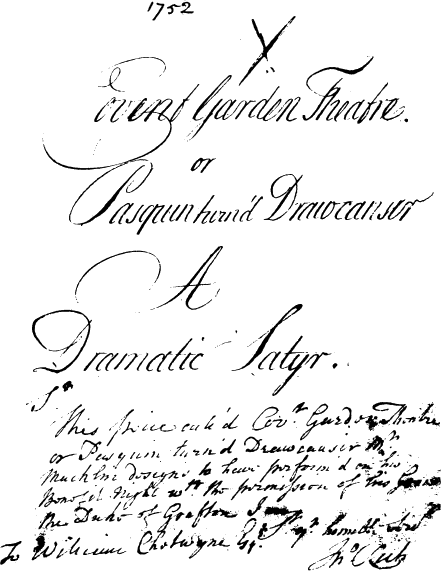 1752
Covent Garden Theatre.
or
Pasquin turn'd Drawcansir
A
Dramatic Satyr.
Sr
This piece call'd Covt. Garden Theatre
or Pasquin turn'd Drawcansir Mr
Macklin designs to have perform'd on his
Benefit Night wth. the permission of his Grace
the Duke of Grafton I am Sr yr. humble Servt
To William Chetwynd Esqr. Jno Rich